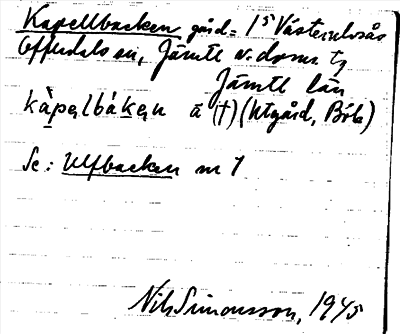 Kapellbacken gård = 1⁵ Västerulvsås
Offerdals sn, Jämtl n. doms tg
Jämtl län
kàpęlbákęn a (†) (Utgård, Böle)
Se: Ulfbacken nr 1
Nils Simonsson, 1945